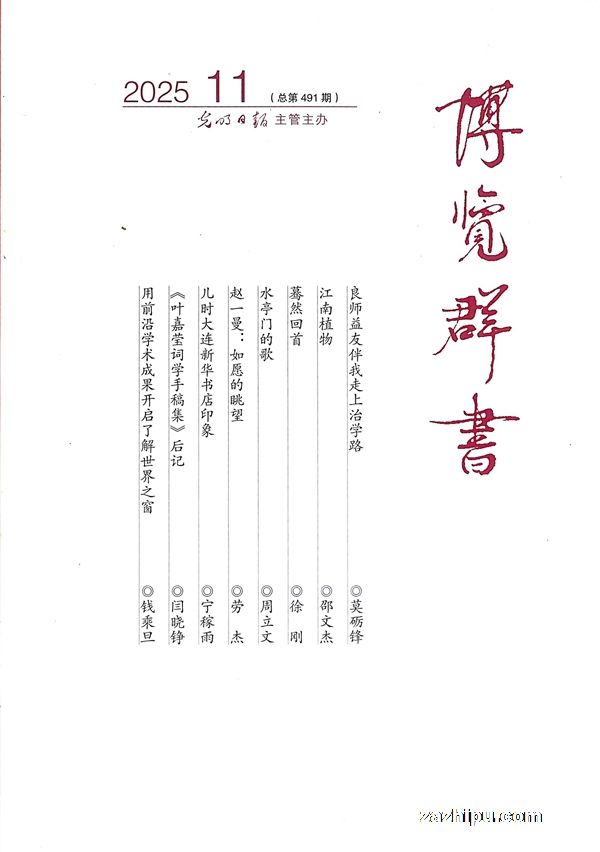 2025 11 (总第 491 期)
光明日报 主管主办
博览群書
良师益友伴我走上治学路 ◎莫砺锋
江南植物 ◎邵文杰
蓦然回首 ◎徐 刚
水亭门的歌 ◎周立文
赵一曼：如愿的眺望 ◎劳 杰
儿时大连新华书店印象 ◎宁稼雨
《叶嘉莹词学手稿集》后记 ◎闫晓铮
用前沿学术成果开启了解世界之窗 ◎钱乘旦
zazhipu.com